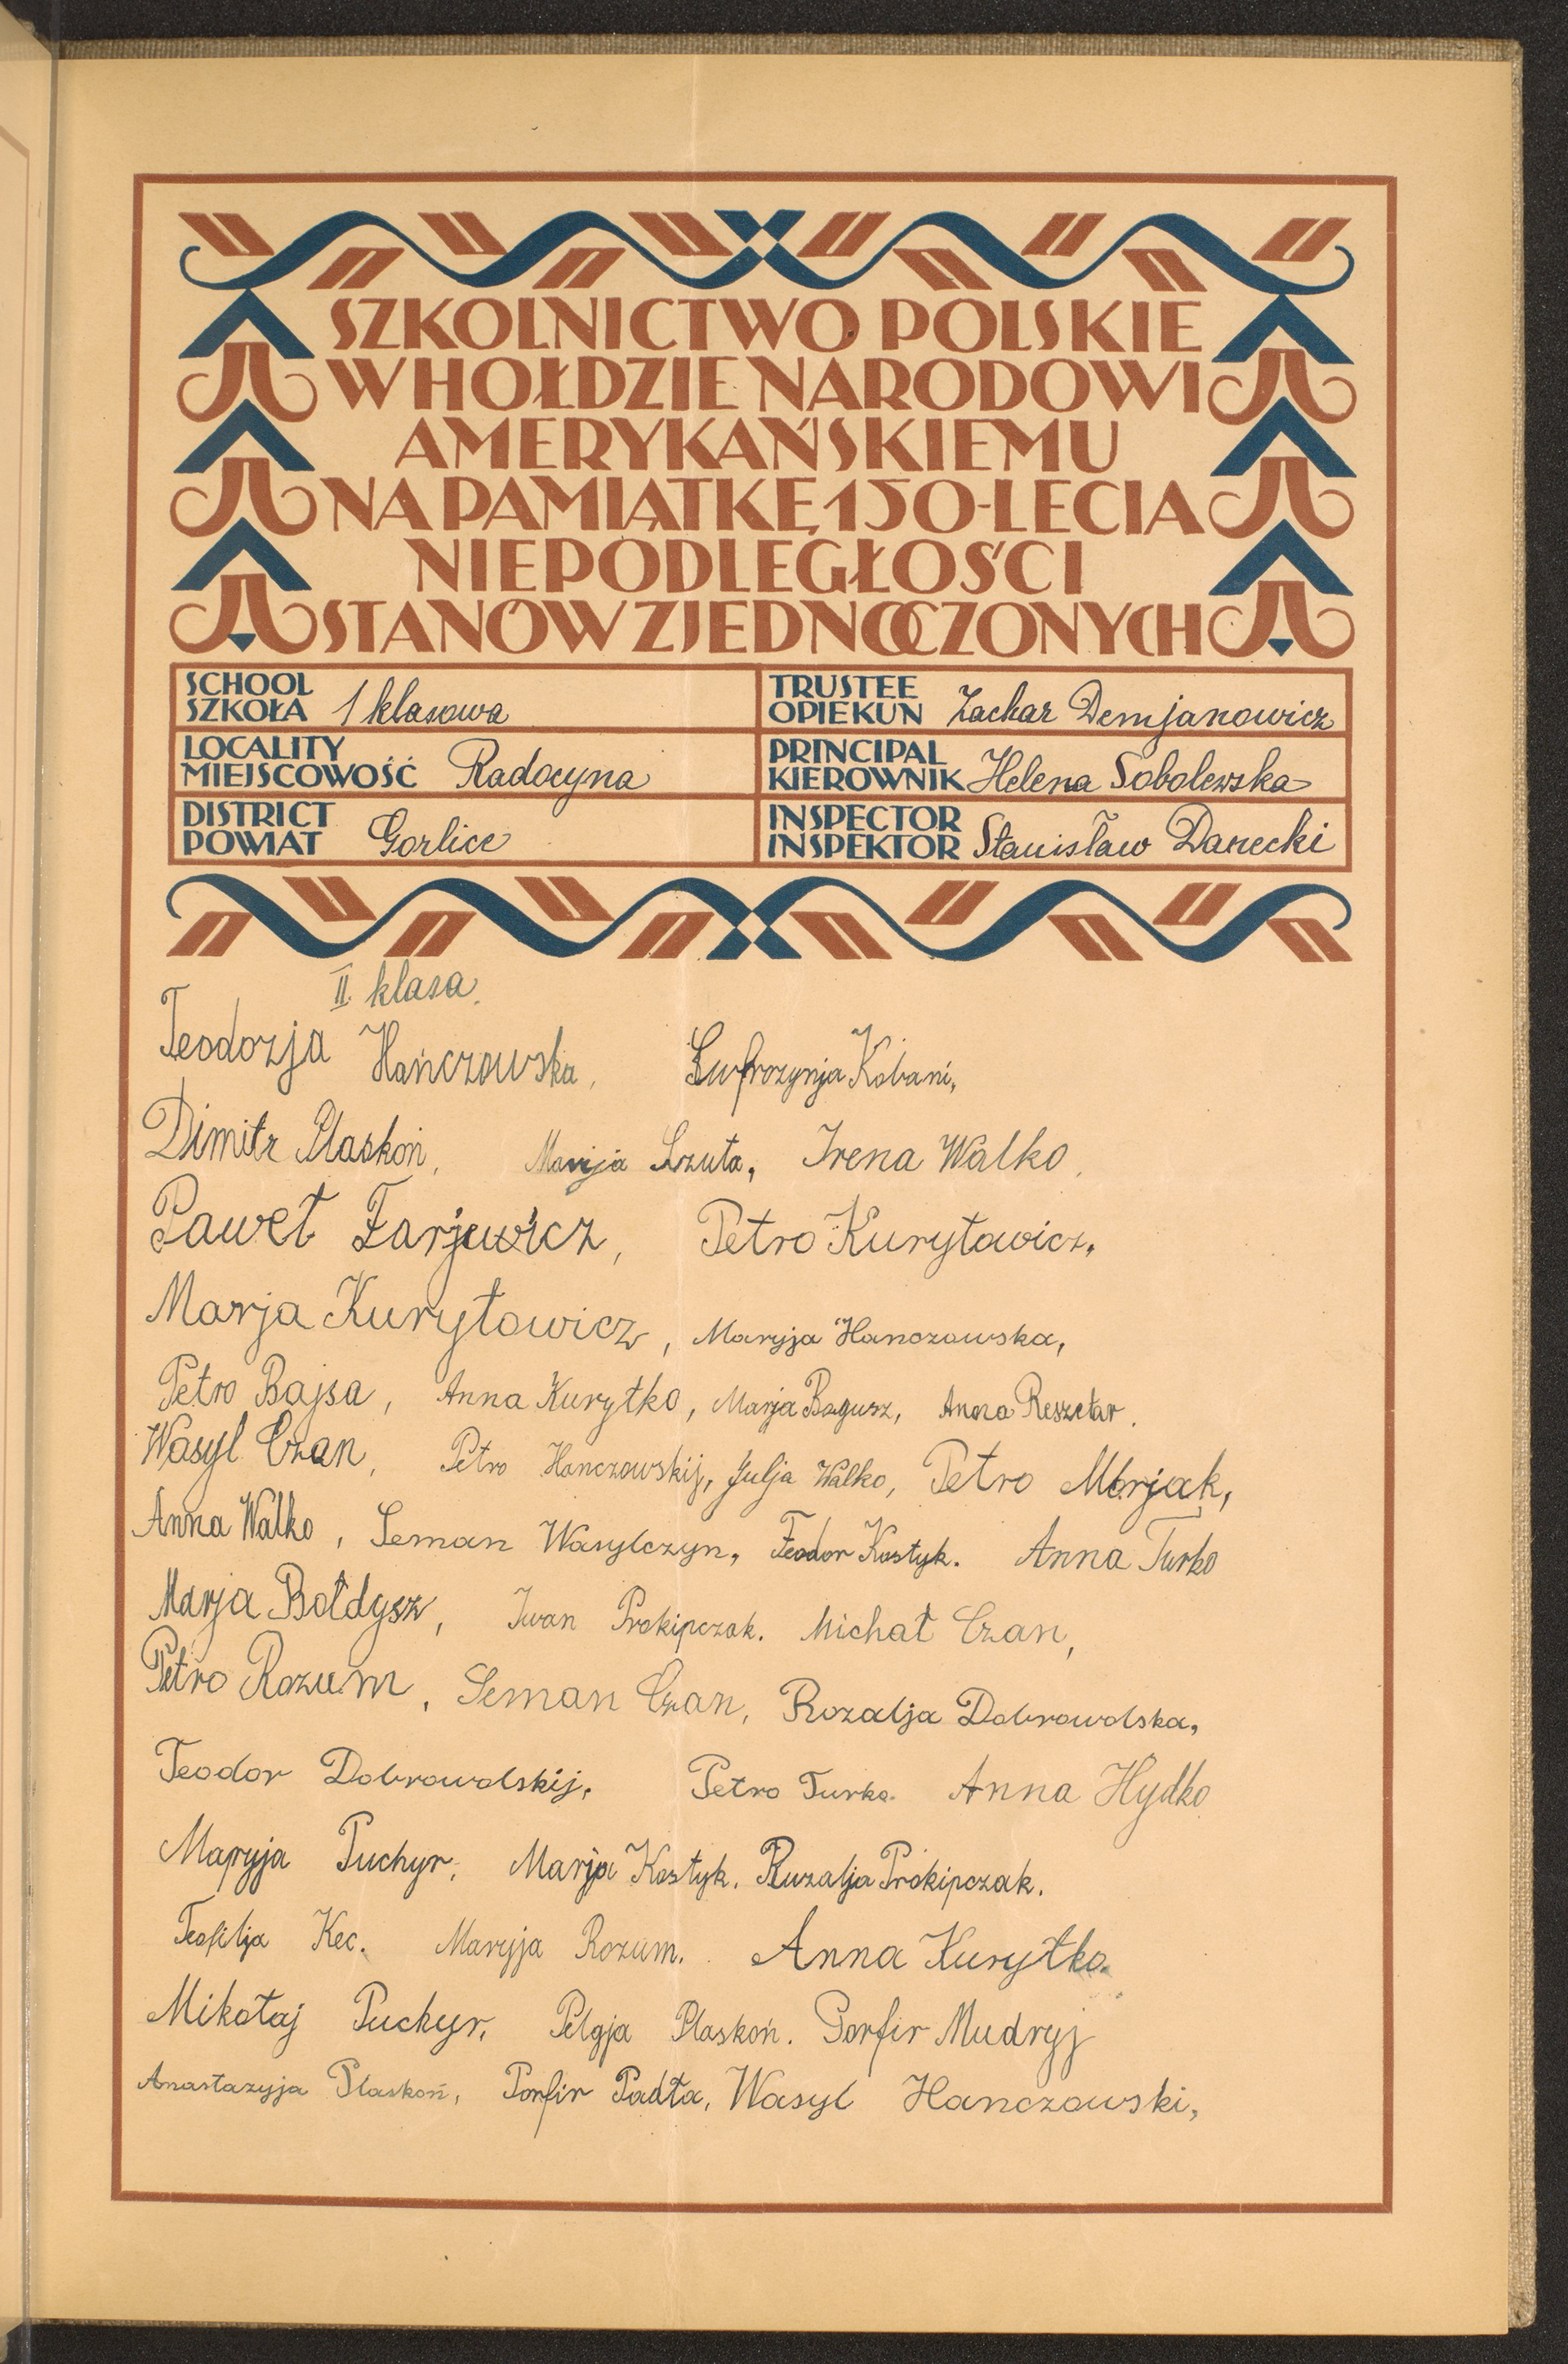 SZKOLNICTWO POLSKIE
W HOŁDZIE NARODOWI
AMERYKAŃSKIEMU
NA PAMIĄTKĘ 150-LECIA
NIEPODLEGŁOŚCI
STANÓW ZJEDNOCZONYCH
SCHOOL
SZKOŁA 1 klasowa
TRUSTEE
OPIEKUN Zachar Demjanowicz
LOCALITY
MIEJSCOWOŚĆ Radocyna
PRINCIPAL
KIEROWNIK Helena Sobolewska
DISTRICT
POWIAT Gorlice
INSPECTOR
INSPEKTOR Stanisław Darecki
II. klasa.
Teodozja Hańczowska, Eufrozynja Kobani,
Dimitr Płaskoń, Maryja Szuta, Irena Walko.
Paweł Zarjewicz, Petro Kuryłowicz,
Marja Kuryłowicz, Maryja Hanczowska,
Petro Bajsa, Anna Kuryłko, Marja Bagusz, Anna Reszetar.
Wasyl Czan, Petro Hanczowskij, Julja Walko, Petro Morjak,
Anna Walko, Seman Wasylczyn, Teodor Kostyk. Anna Turko
Marja Bołdysz, Iwan Prokipczak. Michał Czan,
Petro Rozum, Seman Czan, Rozalja Dobrowolska,
Teodor Dobrowolskij, Petro Turko. Anna Hydko
Maryja Puchyr, Marja Kostyk. Ruzalja Prokipczak.
Teofilja Kec. Maryja Rozum. Anna Kuryłko.
Mikołaj Puchyr, Pelgja Płaskoń. Porfir Mudryj
Anastazyja Płaskoń, Porfir Padła, Wasyl Hanczowski,